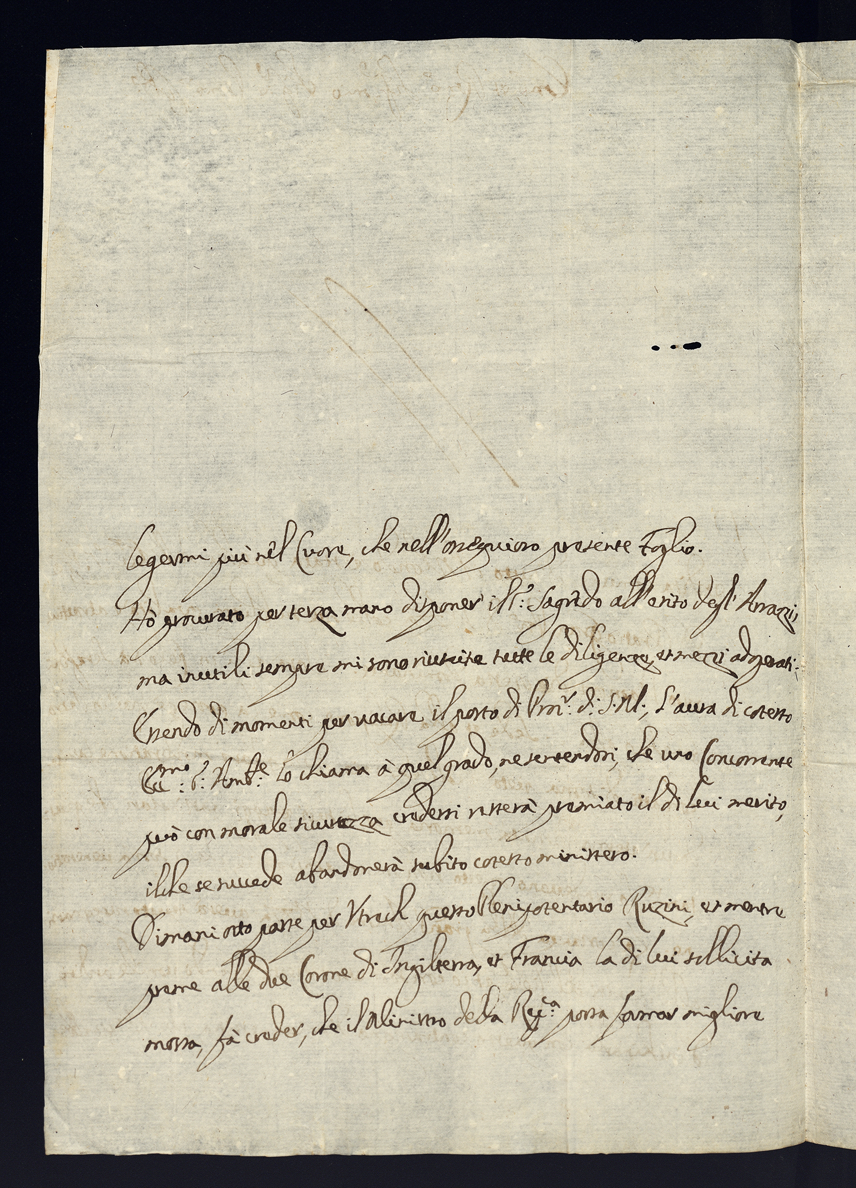 legermi più nel Cuore, che nell'ossequioso presente Foglio.
Hò procurato per terza mano disponer il S.r Sagredo all'esito degl'Arazzi,
ma inutili sempre mi sono riuscite tutte le diligenze, et mezzi adoperati.
Essendo di momenti per vacare il posto di Pro.r di S. M., l'aura di cotesto
Ecc.mo S.r Amb.r lo chiama à quel grado, ne sentendosi, che uno Concorrente
può con morale sicurezza credersi resterà premiato il di Lui merito,
il che se succede abandonerà subito cotesto ministero.
Dimani otto parte per Vtrech questo Plenipotentiario Ruzini, et mentre
preme alle due Corone di Ingilterra, et Francia la di lui sollicita
mossa, fà creder, che il Ministro della Rep.ca possa formar migliore